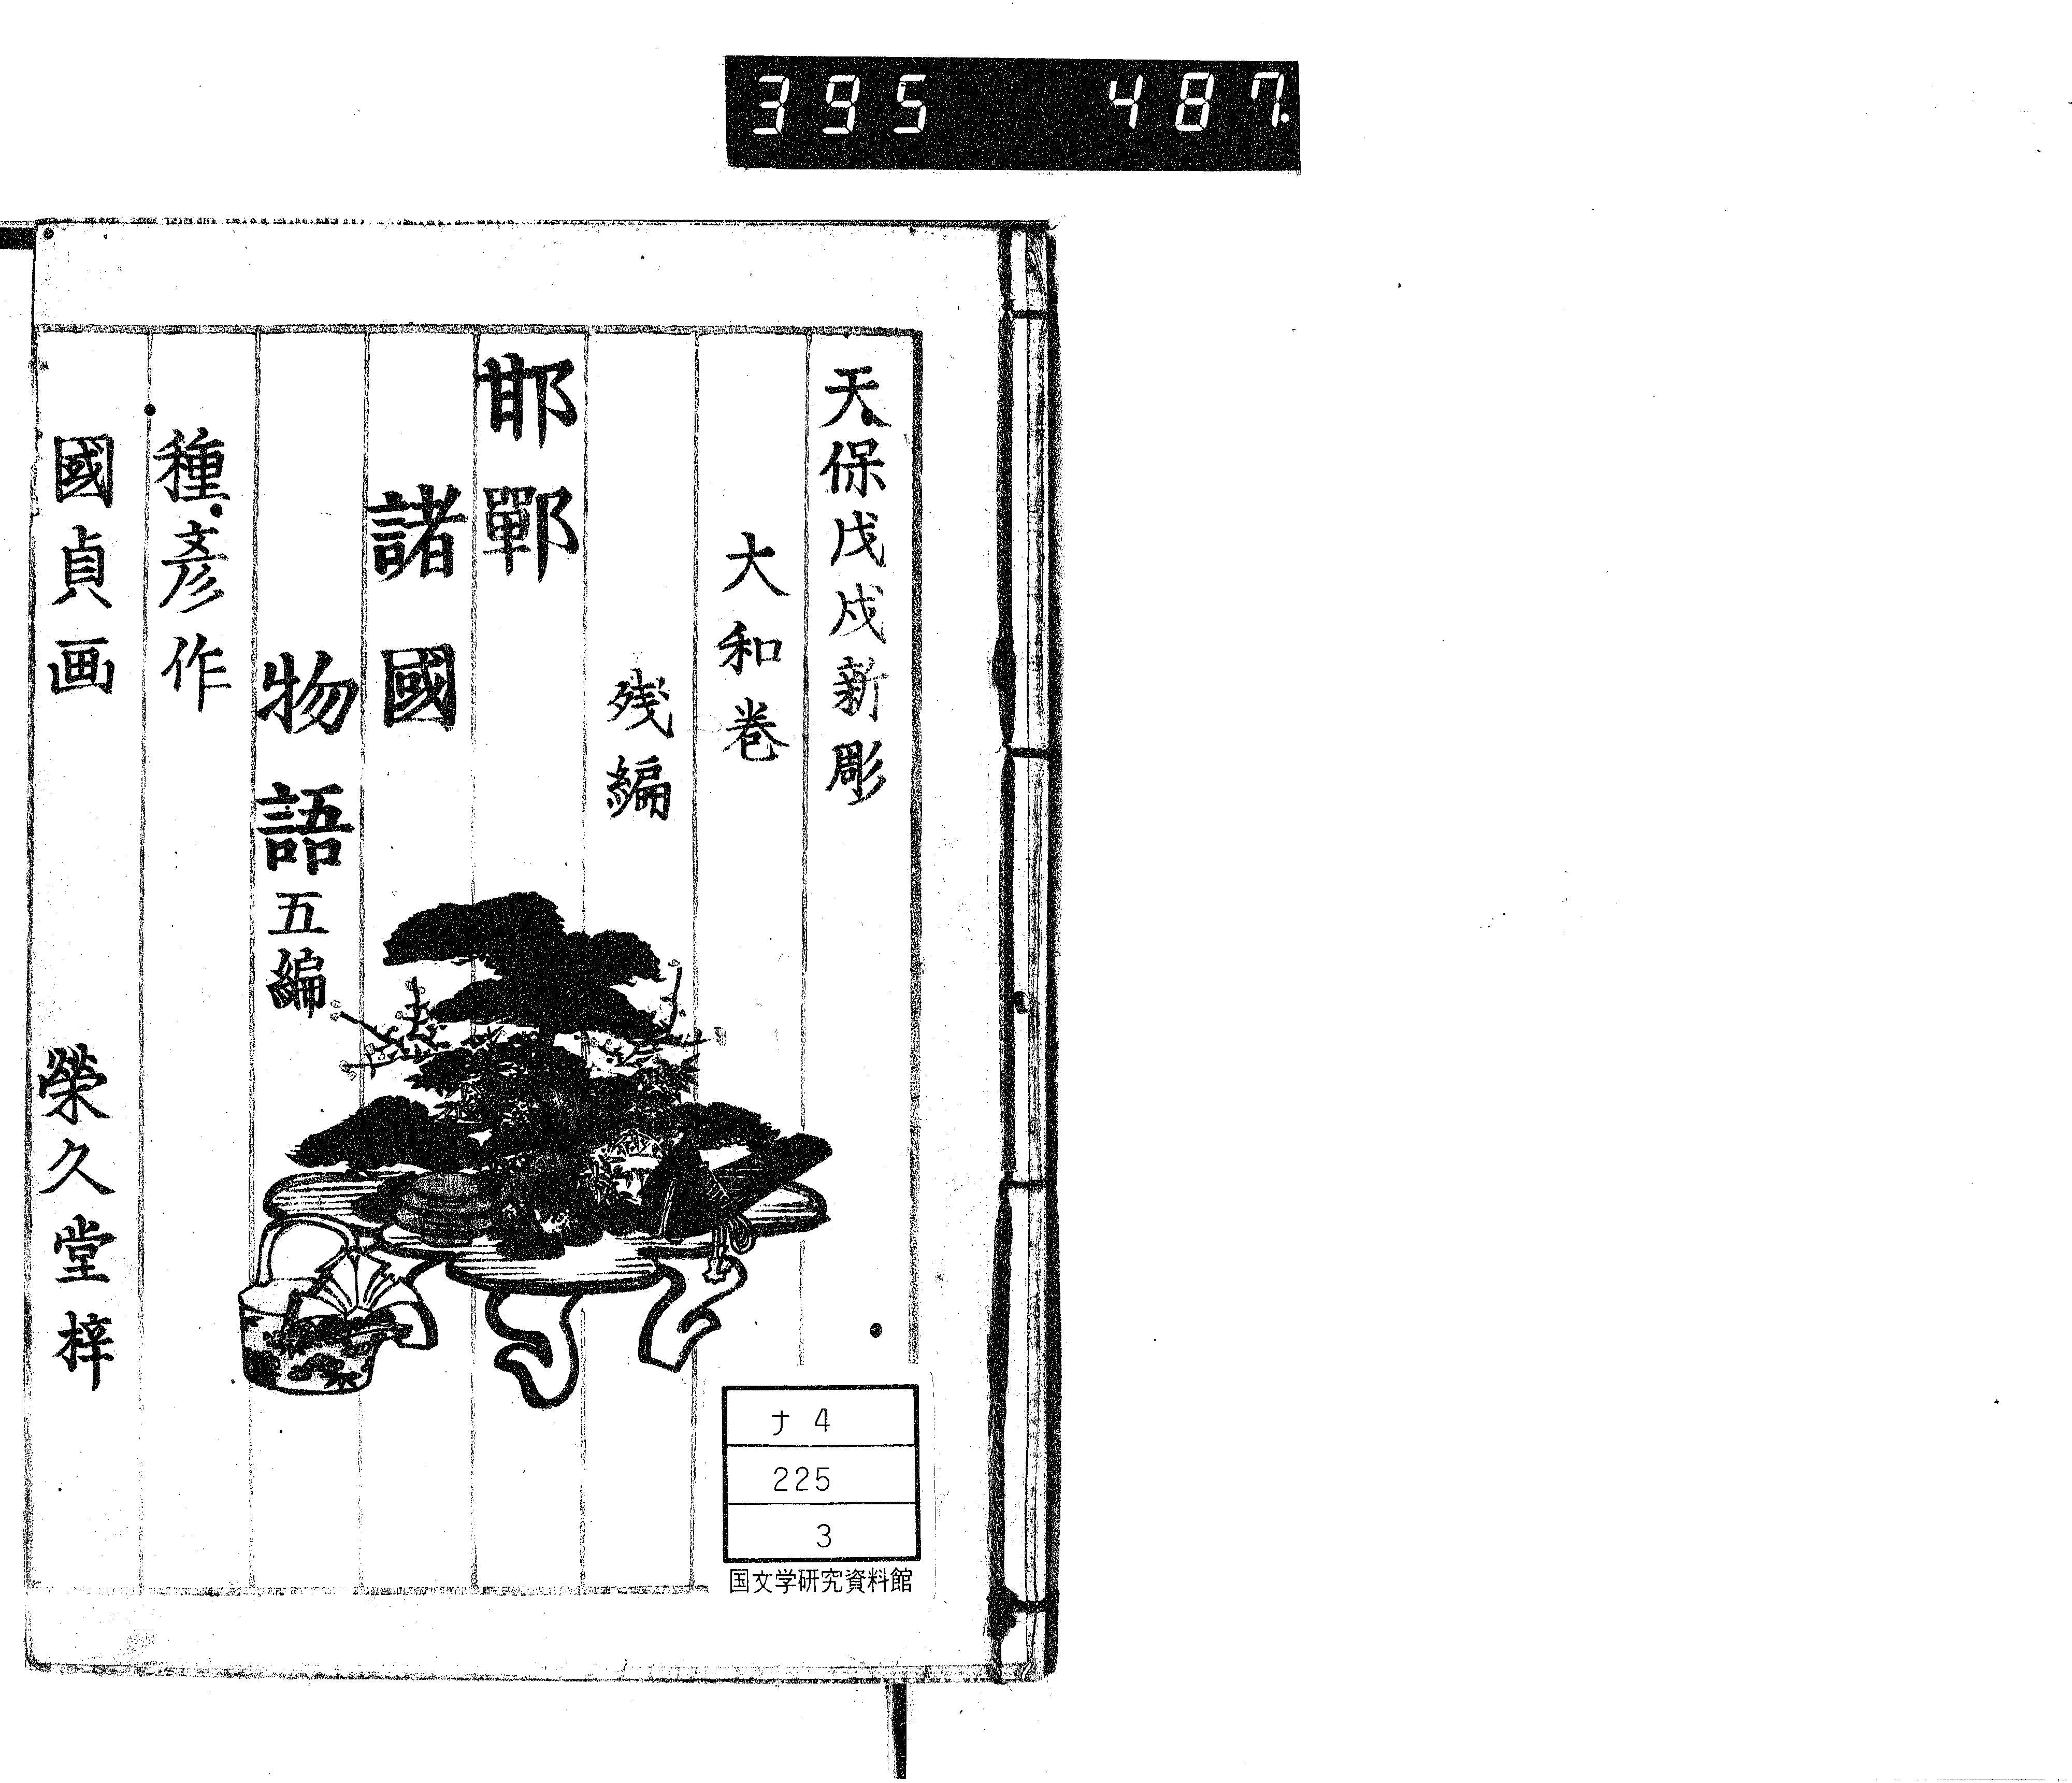 395 487.
天保戊戌新彫
大和巻
残編
邯鄲
諸國
物語五編
種彦作
國貞画
榮久堂梓
ナ 4
225
3
国文学研究資料館